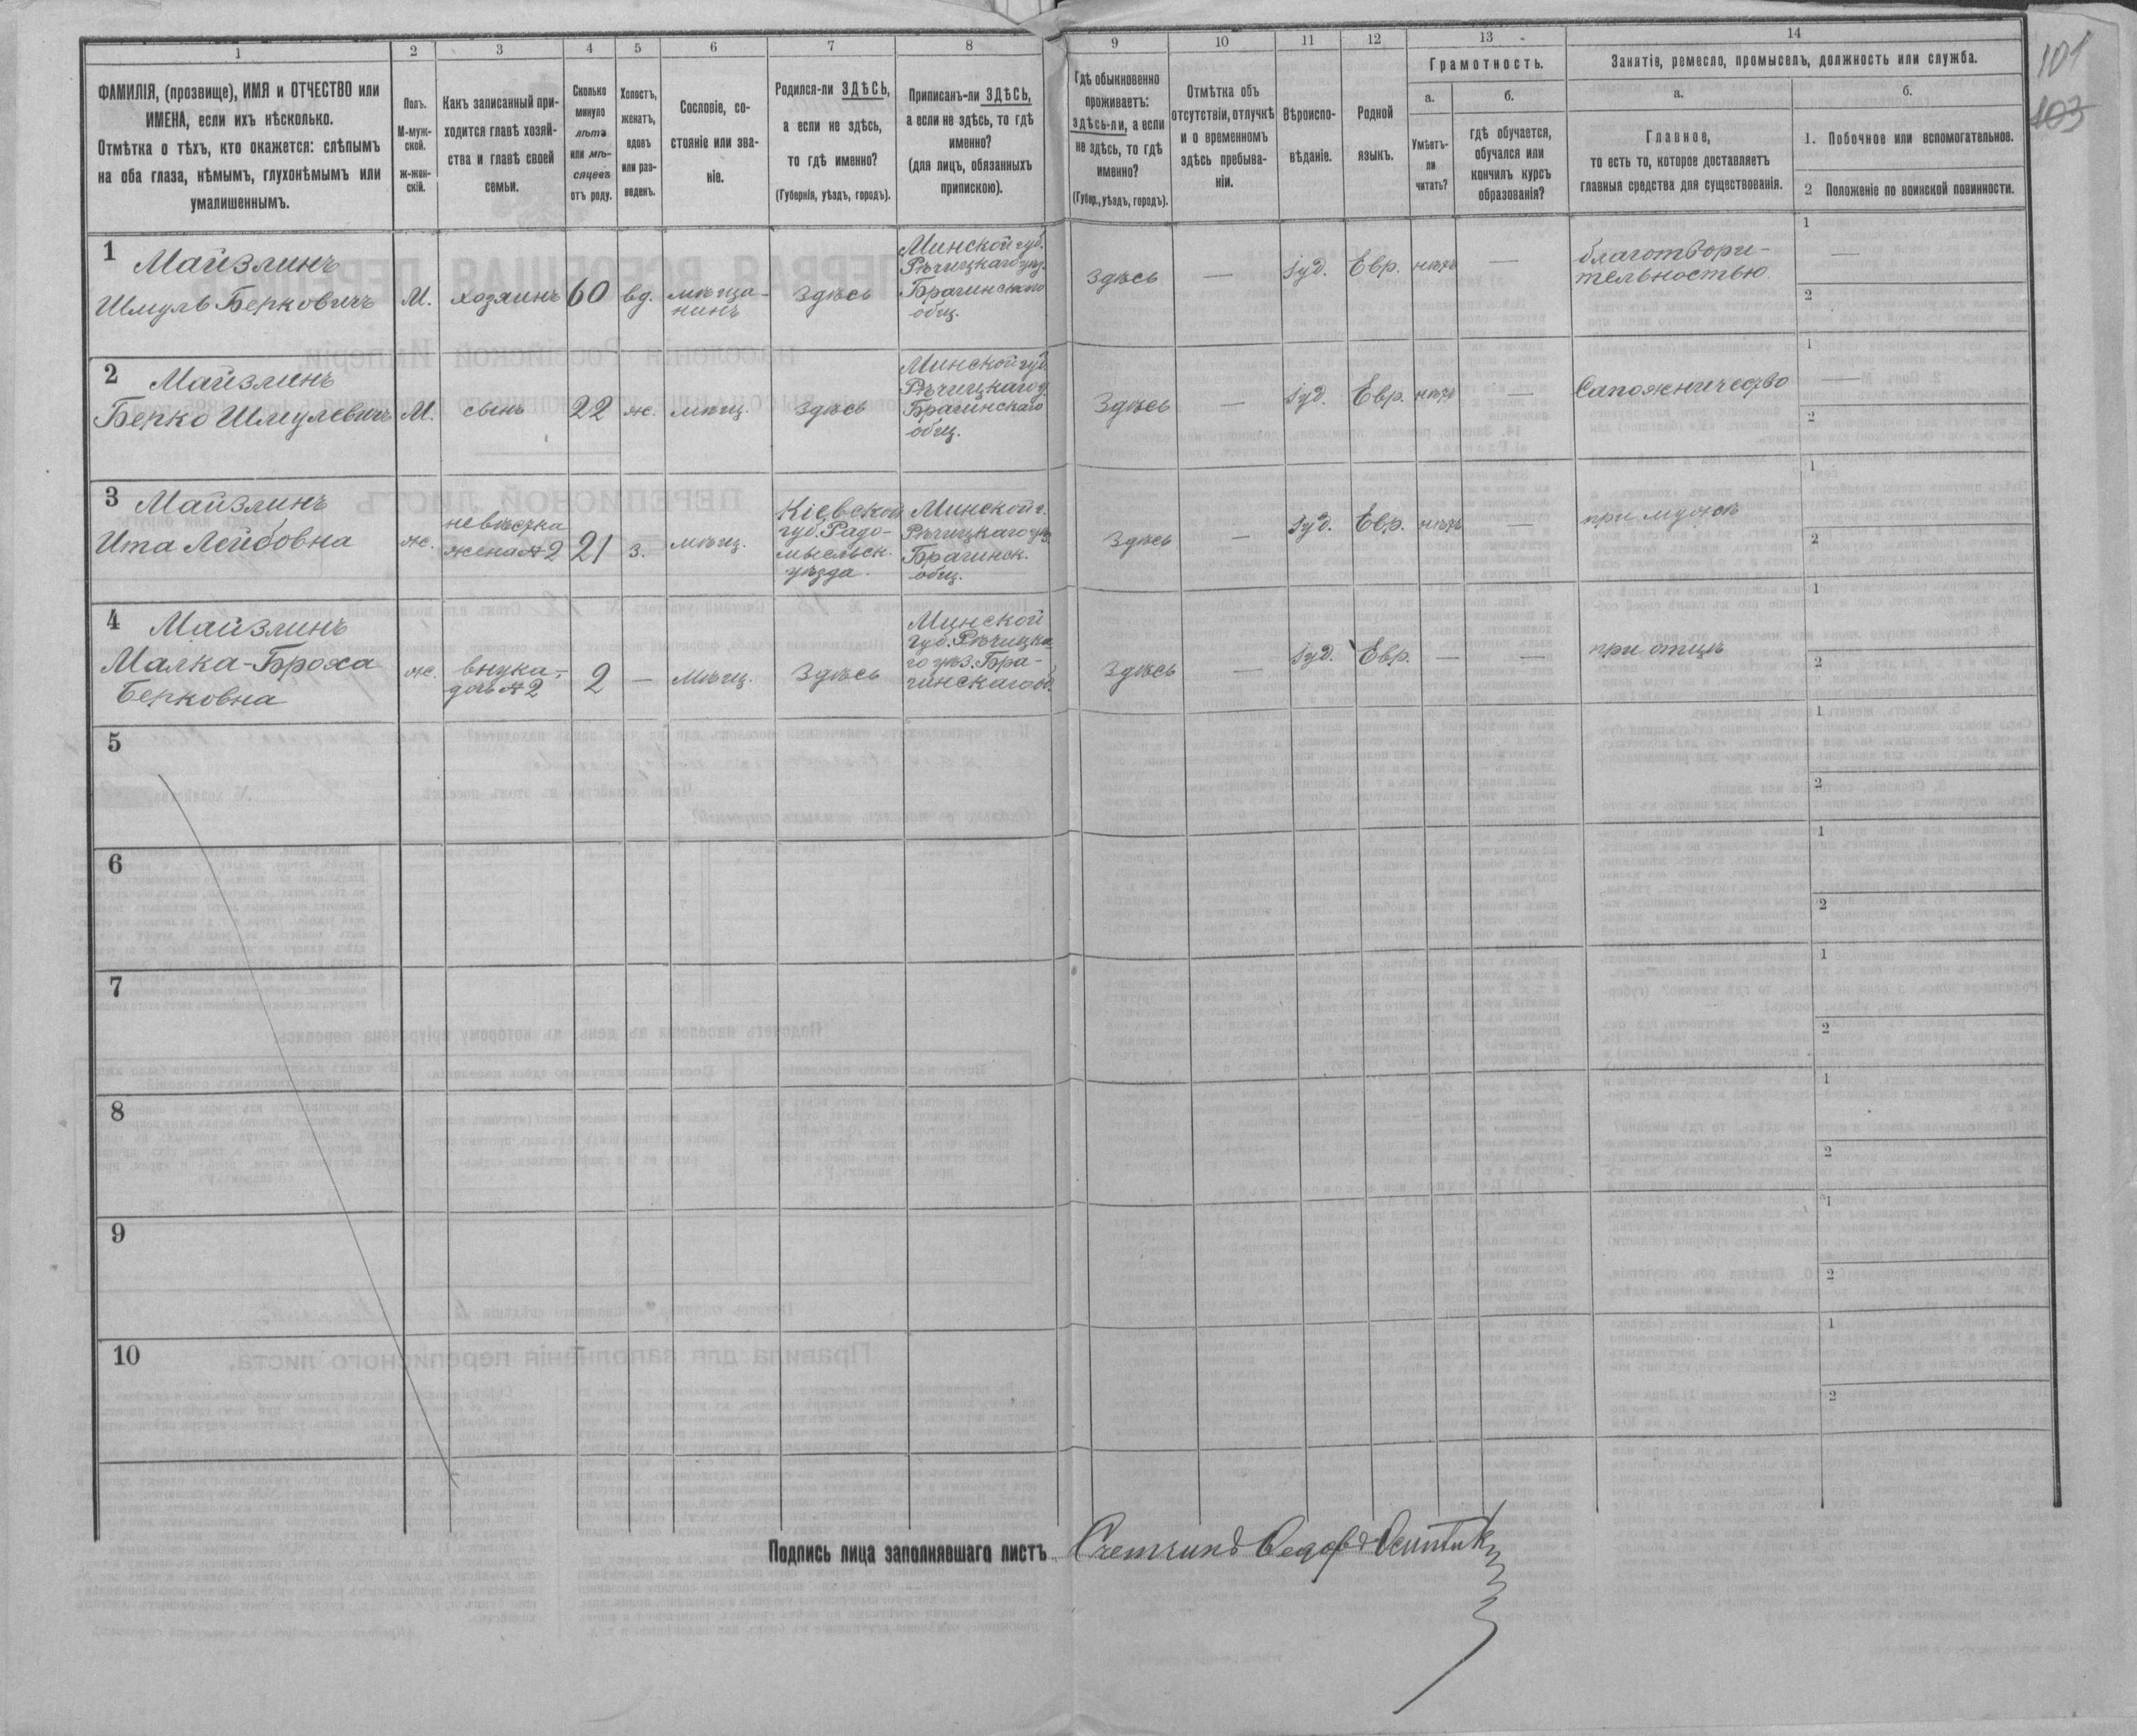 1 2 3 4 5 6 7 8 9 10 11 12 13 14
101
103
ФАМИЛІЯ, (прозвище), ИМЯ и ОТЧЕСТВО или
ИМЕНА, если ихъ нѣсколько.
Отмѣтка о тѣхъ, кто окажется: слѣпымъ
на оба глаза, нѣмымъ, глухонѣмымъ или
умалишеннымъ.
Полъ.
М-муж-
ской.
ж-жен-
скій.
Какъ записанный при-
ходится главѣ хозяй-
ства и главѣ своей
семьи.
Сколько
минуло
лѣтъ
или мѣ-
сяцевъ
отъ роду.
Холостъ,
женатъ,
вдовъ
или раз-
веденъ.
Сословіе, со-
стояніе или зва-
ніе.
Родился-ли ЗДѢСЬ,
а если не здѣсь,
то гдѣ именно?
(Губернія, уѣздъ, городъ).
Приписанъ-ли ЗДѢСЬ,
а если не здѣсь, то гдѣ
именно?
(для лицъ, обязанныхъ
припискою).
Гдѣ обыкновенно
проживаетъ:
здѣсь-ли, а если
не здѣсь, то гдѣ
именно?
(Губер., уѣздъ, городъ).
Отмѣтка объ
отсутствіи, отлучкѣ
и о временномъ
здѣсь пребыва-
ніи.
Вѣроиспо-
вѣданіе.
Родной
языкъ.
Грамотность.
а.
Умѣетъ-
ли
читать?
б.
гдѣ обучается,
обучался или
кончилъ курсъ
образованія?
Занятіе, ремесло, промыселъ, должность или служба.
а.
Главное,
то есть то, которое доставляетъ
главныя средства для существованія.
б.
1. Побочное или вспомогательное.
2 Положеніе по воинской повинности.
1
Майзлинъ
Шмуль Берковичъ
М.
хозяинъ
60
вд.
мѣща-
нинъ
здѣсь
Минской губ.
Рѣчицкаго уѣз.
Брагинскаго
общ.
здѣсь
—
Іуд.
Евр.
нѣтъ
—
благотвори-
тельностью
1
—
2
2
Майзлинъ
Берко Шмулевичъ
М.
сынъ
22
ж.
мѣщ.
здѣсь
Минской губ.
Рѣчицкаго у.
Брагинскаго
общ.
здѣсь
—
Іуд.
Евр.
нѣтъ
—
Сапожничество
1
—
2
3
Майзлинъ
Ита Лейбовна
ж.
невѣстка
жена № 2
21
з.
мѣщ.
Кіевской
губ. Радо-
мысльск.
уѣзда.
Минской г.
Рѣчицкаго уѣз.
Брагинск.
общ.
здѣсь
—
Іуд.
Евр.
нѣтъ
—
при мужѣ
1
2
4
Майзлинъ
Малка-Броха
Берковна
ж.
внука,-
дочь № 2
2
—
мѣщ.
здѣсь
Минской
губ. Рѣчицка
го уѣз. Бра-
гинскаго об.
здѣсь
—
Іуд.
Евр.
—
—
при отцѣ
1
2
5
1
2
6
1
2
7
1
2
8
1
2
9
1
2
10
1
2
Подпись лица заполнявшаго листъ